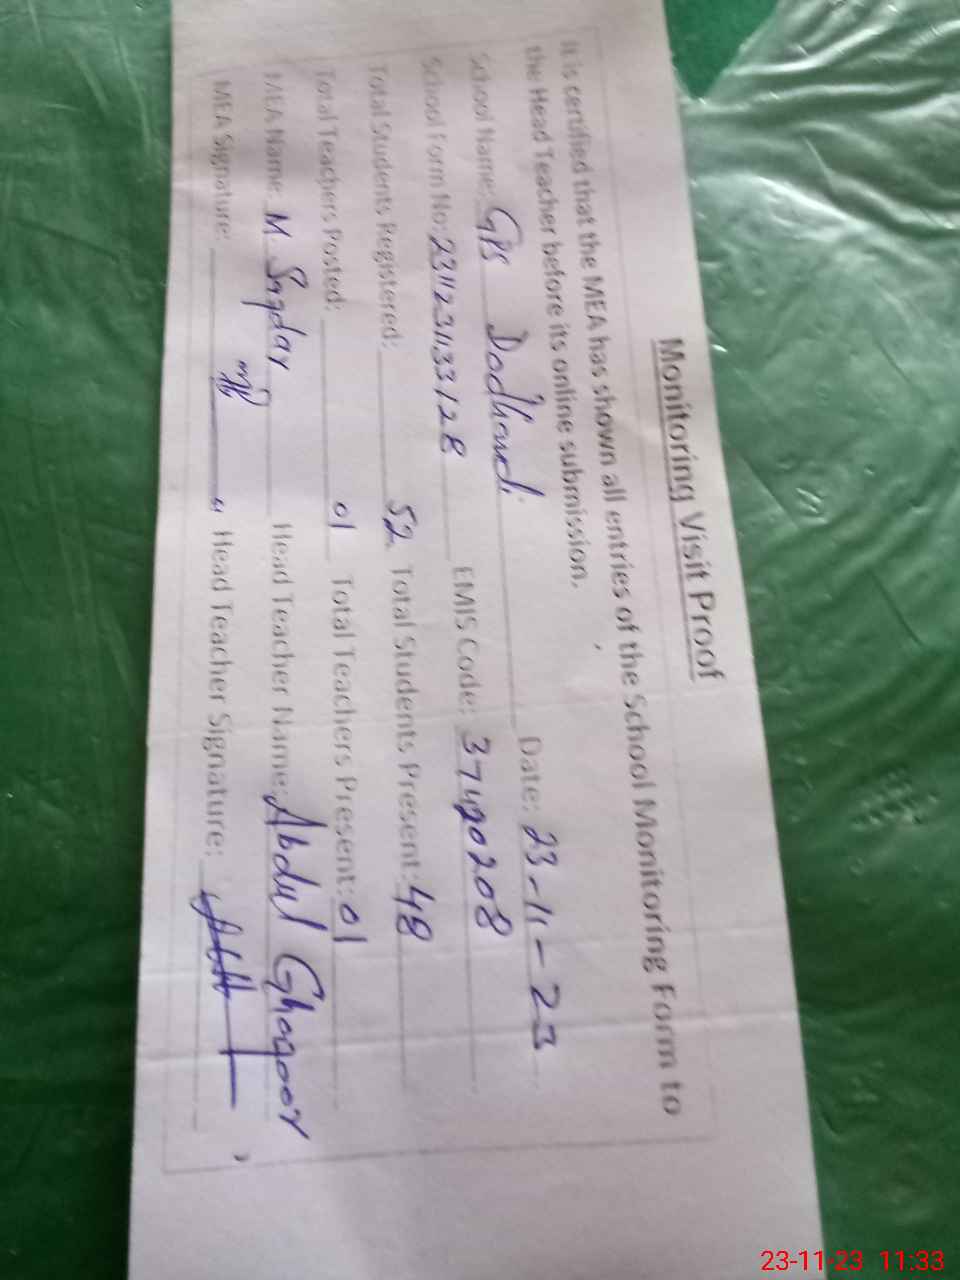 Monitoring Visit Proof
It is certified that the MEA has shown all entries of the School Monitoring Form to
the Head Teacher before its online submission.
School Name: GPS Dodhandi Date: 23-11-23
School Form No: 2311231133128 EMIS Code: 37420208
Total Students Registered: 52 Total Students Present: 48
Total Teachers Posted: 01 Total Teachers Present: 01
MEA Name: M Safdar Head Teacher Name: Abdul Ghafoor
MEA Signature: Head Teacher Signature:
23-11-23 11:33